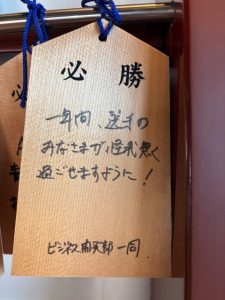 必勝
一年間、選手の
みなさまが怪我無く
過ごせますように！
ビジネス開発部一同